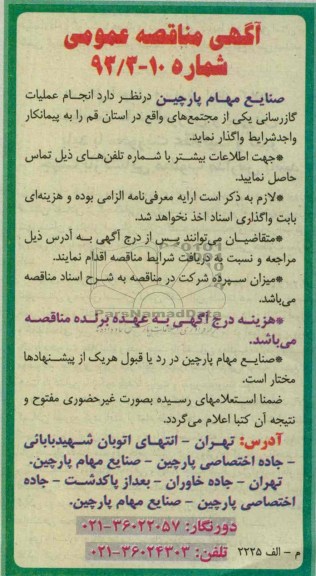 آگهی مناقصه عمومی
شماره ۱۰-۹۳/۳
صنایع مهام پارچین درنظر دارد انجام عملیات
گازرسانی یکی از مجتمع‌های واقع در استان قم را به پیمانکار
واجدشرایط واگذار نماید.
*جهت اطلاعات بیشتر با شماره تلفن‌های ذیل تماس
حاصل نمایید.
*لازم به ذکر است ارایه معرفی‌نامه الزامی بوده و هزینه‌ای
بابت واگذاری اسناد اخذ نخواهد شد.
*متقاضیان می‌توانند پس از درج آگهی به آدرس ذیل
مراجعه و نسبت به دریافت شرایط مناقصه اقدام نمایند.
*میزان سپرده شرکت در مناقصه به شرح اسناد مناقصه
می‌باشد.
ParsNamadData
*هزینه درج آگهی به عهده برنده مناقصه
می‌باشد.
*صنایع مهام پارچین در رد یا قبول هریک از پیشنهادها
مختار است.
ضمنا استعلامهای رسیده بصورت غیرحضوری مفتوح و
نتیجه آن کتبا اعلام می‌گردد.
آدرس: تهران - انتهای اتوبان شهیدبابائی
- جاده اختصاصی پارچین - صنایع مهام پارچین.
تهران - جاده خاوران - بعداز پاکدشت - جاده
اختصاصی پارچین - صنایع مهام پارچین.
دورنگار: ۳۶۰۲۲۰۵۷-۰۲۱
تلفن: ۳۶۰۲۴۳۰۳-۰۲۱
م - الف ۲۲۲۵